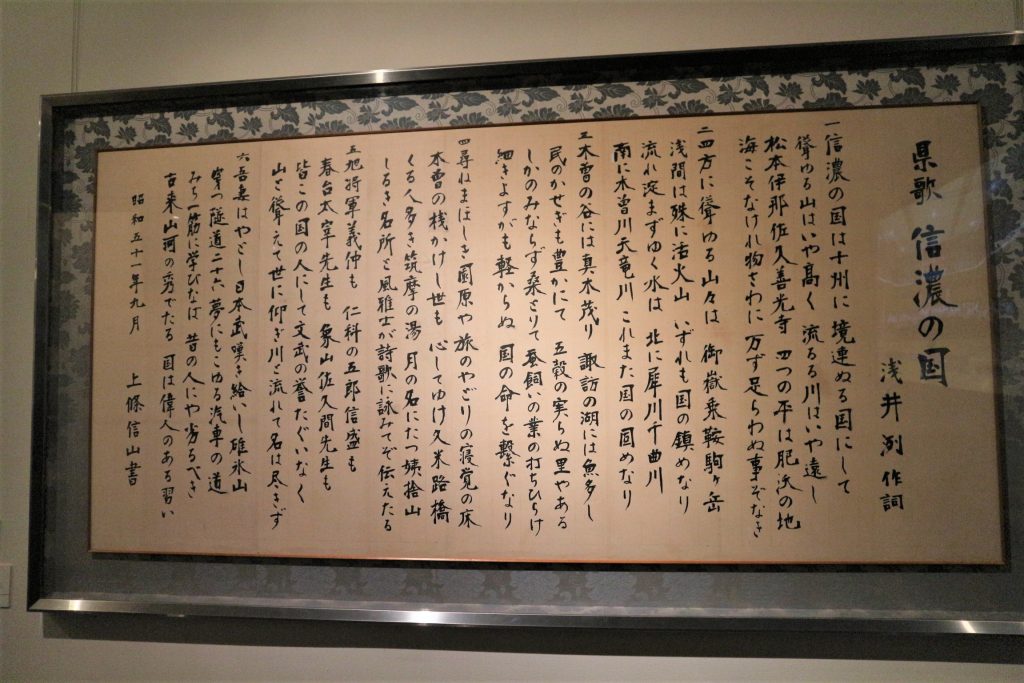 県歌 信濃の国
浅井洌作詞
一信濃の国は十州に 境連ぬる国にして
聳ゆる山はいや高く 流るる川はいや遠し
松本伊那佐久善光寺 四つの平は肥沃の地
海こそなけれ物さわに 万ず足らわぬ事ぞなき
二四方に聳ゆる山々は 御嶽乗鞍駒ヶ岳
浅間は殊に活火山 いずれも国の鎮めなり
流れ淀まずゆく水は 北に犀川千曲川
南に木曽川天竜川 これまた国の固めなり
三木曽の谷には真木茂り 諏訪の湖には魚多し
民のかせぎも豊かにて 五穀の実らぬ里やある
しかのみならず桑とりて 蚕飼いの業の打ちひらけ
細きよすがも軽からぬ 国の命を繋ぐなり
四尋ねまほしき園原や 旅のやどりの寝覚の床
木曽の桟かけし世も 心してゆけ久米路橋
くる人多き筑摩の湯 月の名にたつ姨捨山
しるき名所と風雅士が詩歌に詠みてぞ伝えたる
五旭将軍義仲も 仁科の五郎信盛も
春台太宰先生も 象山佐久間先生も
皆この国の人にして文武の誉たぐいなく
山と聳えて世に仰ぎ川と流れて名は尽きず
六吾妻はやとし日本武 嘆き給いし碓氷山
穿つ隧道二十六 夢にもこゆる汽車の道
みち一筋に学びなば 昔の人にや劣るべき
古来山河の秀でたる 国は偉人のある習い
昭和五十一年九月 上條信山書